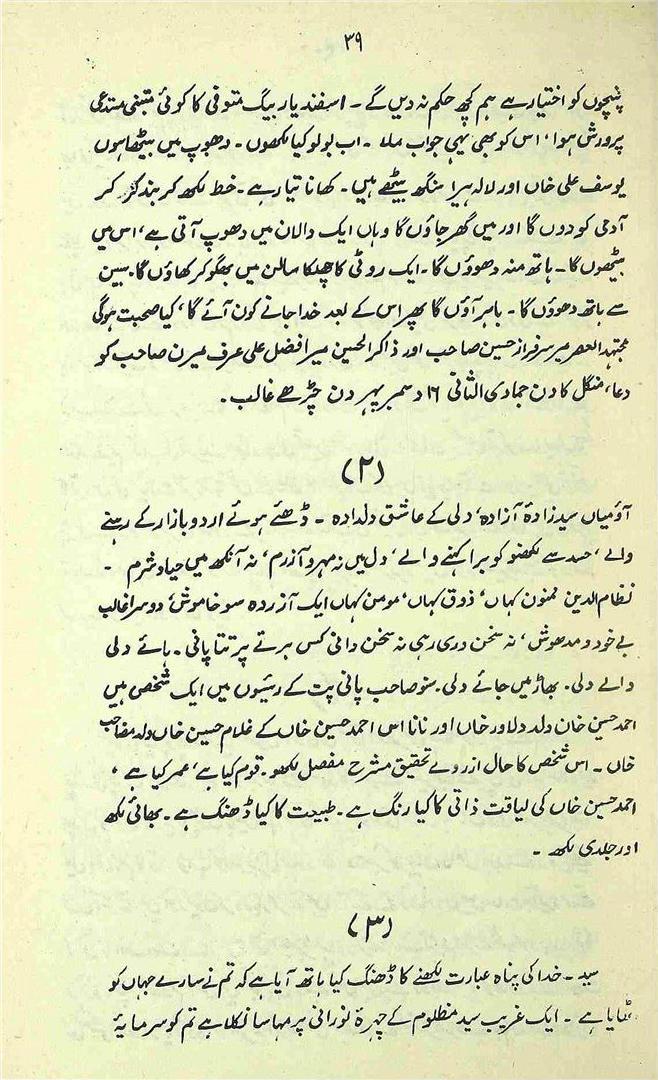 ۳۹
پنچوں کو اختیار ہے ہم کچھ حکم نہ دیں گے ۔ اسفند یار بیگ متوفی کا کوئی متبنی مستدعی
پرورش ہوا، اس کو بھی یہی جواب ملا ۔ اب بولو کیا لکھوں ۔ دھوپ میں بیٹھا ہوں
یوسف علی خاں اور لالہ ہیرا سنگھ بیٹھے ہیں ۔ کھانا تیار ہے ۔ خط لکھ کر بند کر کر
آدمی کو دوں گا اور میں گھر جاؤں گا وہاں ایک دالان میں دھوپ آتی ہے، اس میں
بیٹھوں گا ۔ ہاتھ منہ دھوؤں گا ۔ ایک روٹی کا چھلکا سالن میں بھگو کر کھاؤں گا، بیسن
سے ہاتھ دھوؤں گا ۔ باہر آؤں گا پھر اس کے بعد خدا جانے کون آئے گا، کیا صحبت ہوگی
مجتہد العصر میر سرفراز حسین صاحب اور ذاکر الحسین میر افضل علی عرف میرن صاحب کو
دعا، منگل کا دن جمادی الثانی ۱۶ دسمبر پہر دن چڑھے غالب ۔
(۲)
آؤ میاں سید زادۂ آزادہ، دلی کے عاشق دلدادہ ۔ ڈھئے ہوئے اردو بازار کے رہنے
والے، حسد سے لکھنو کو برا کہنے والے، دل میں نہ مہر و آزرم، نہ آنکھ میں حیا و شرم ۔
نظام الدین ممنون کہاں، ذوق کہاں، مومن کہاں ایک آزردہ سو خاموش، دوسرا غالب
بے خود و مدھوش، نہ سخن دری رہی نہ سخن دانی کس برتے پر تتا پانی ۔ ہائے دلی
وائے دلی ۔ بھاڑ میں جائے دلی ۔ سنو صاحب پانی پت کے رئیسوں میں ایک شخص ہیں
احمد حسین خان ولد دلاور خاں اور نانا اس احمد حسین خاں کے غلام حسین خاں ولد مصاحب
خاں ۔ اس شخص کا حال از روئے تحقیق مشرح مفصل لکھو ۔ قوم کیا ہے، عمر کیا ہے،
احمد حسین خاں کی لیاقت ذاتی کا کیا رنگ ہے ۔ طبیعت کا کیا ڈھنگ ہے ۔ بھائی لکھ
اور جلدی لکھ ۔
(۳)
سید ۔ خدا کی پناہ عبارت لکھنے کا ڈھنگ کیا ہاتھ آیا ہے کہ تم نے سارے جہاں کو
اٹھایا ہے ۔ ایک غریب سید مظلوم کے چہرۂ نورانی پر مہاسا نکلا ہے تم کو سرمایۂ